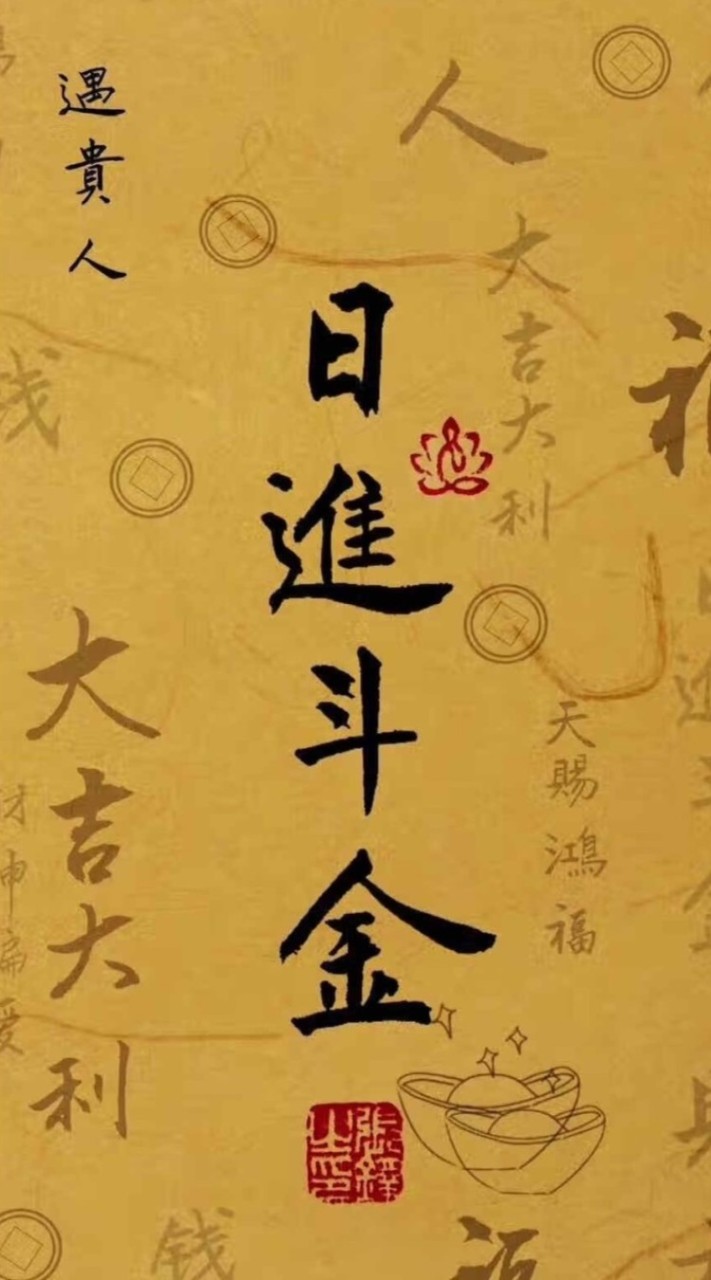 遇貴人
人
大吉大利
福
钱
日進斗金
大吉大利
天賜鴻福
财神偏爱
日進斗金
钱
福